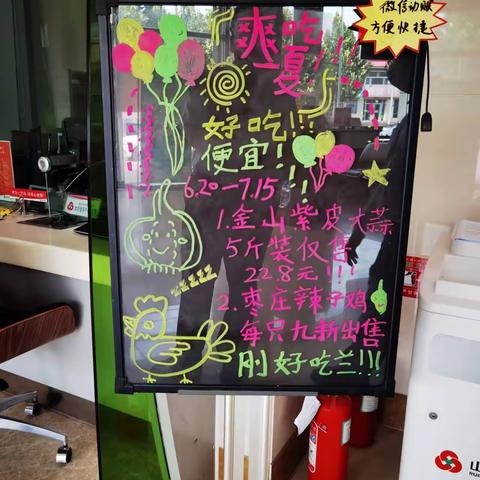 微信动账
方便快捷
爽吃
一夏!!!
好吃!!!
便宜!!!
6.20-7.15
1.金山紫皮大蒜
5斤装仅售
22.8元!!!
2.枣庄辣子鸡
每只九新出售
刚好吃兰!!!
山